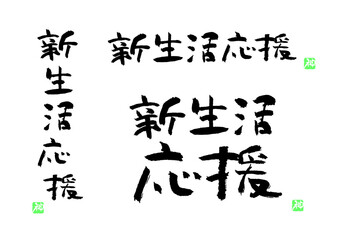 新生活応援
新生活応援
新生活
応援